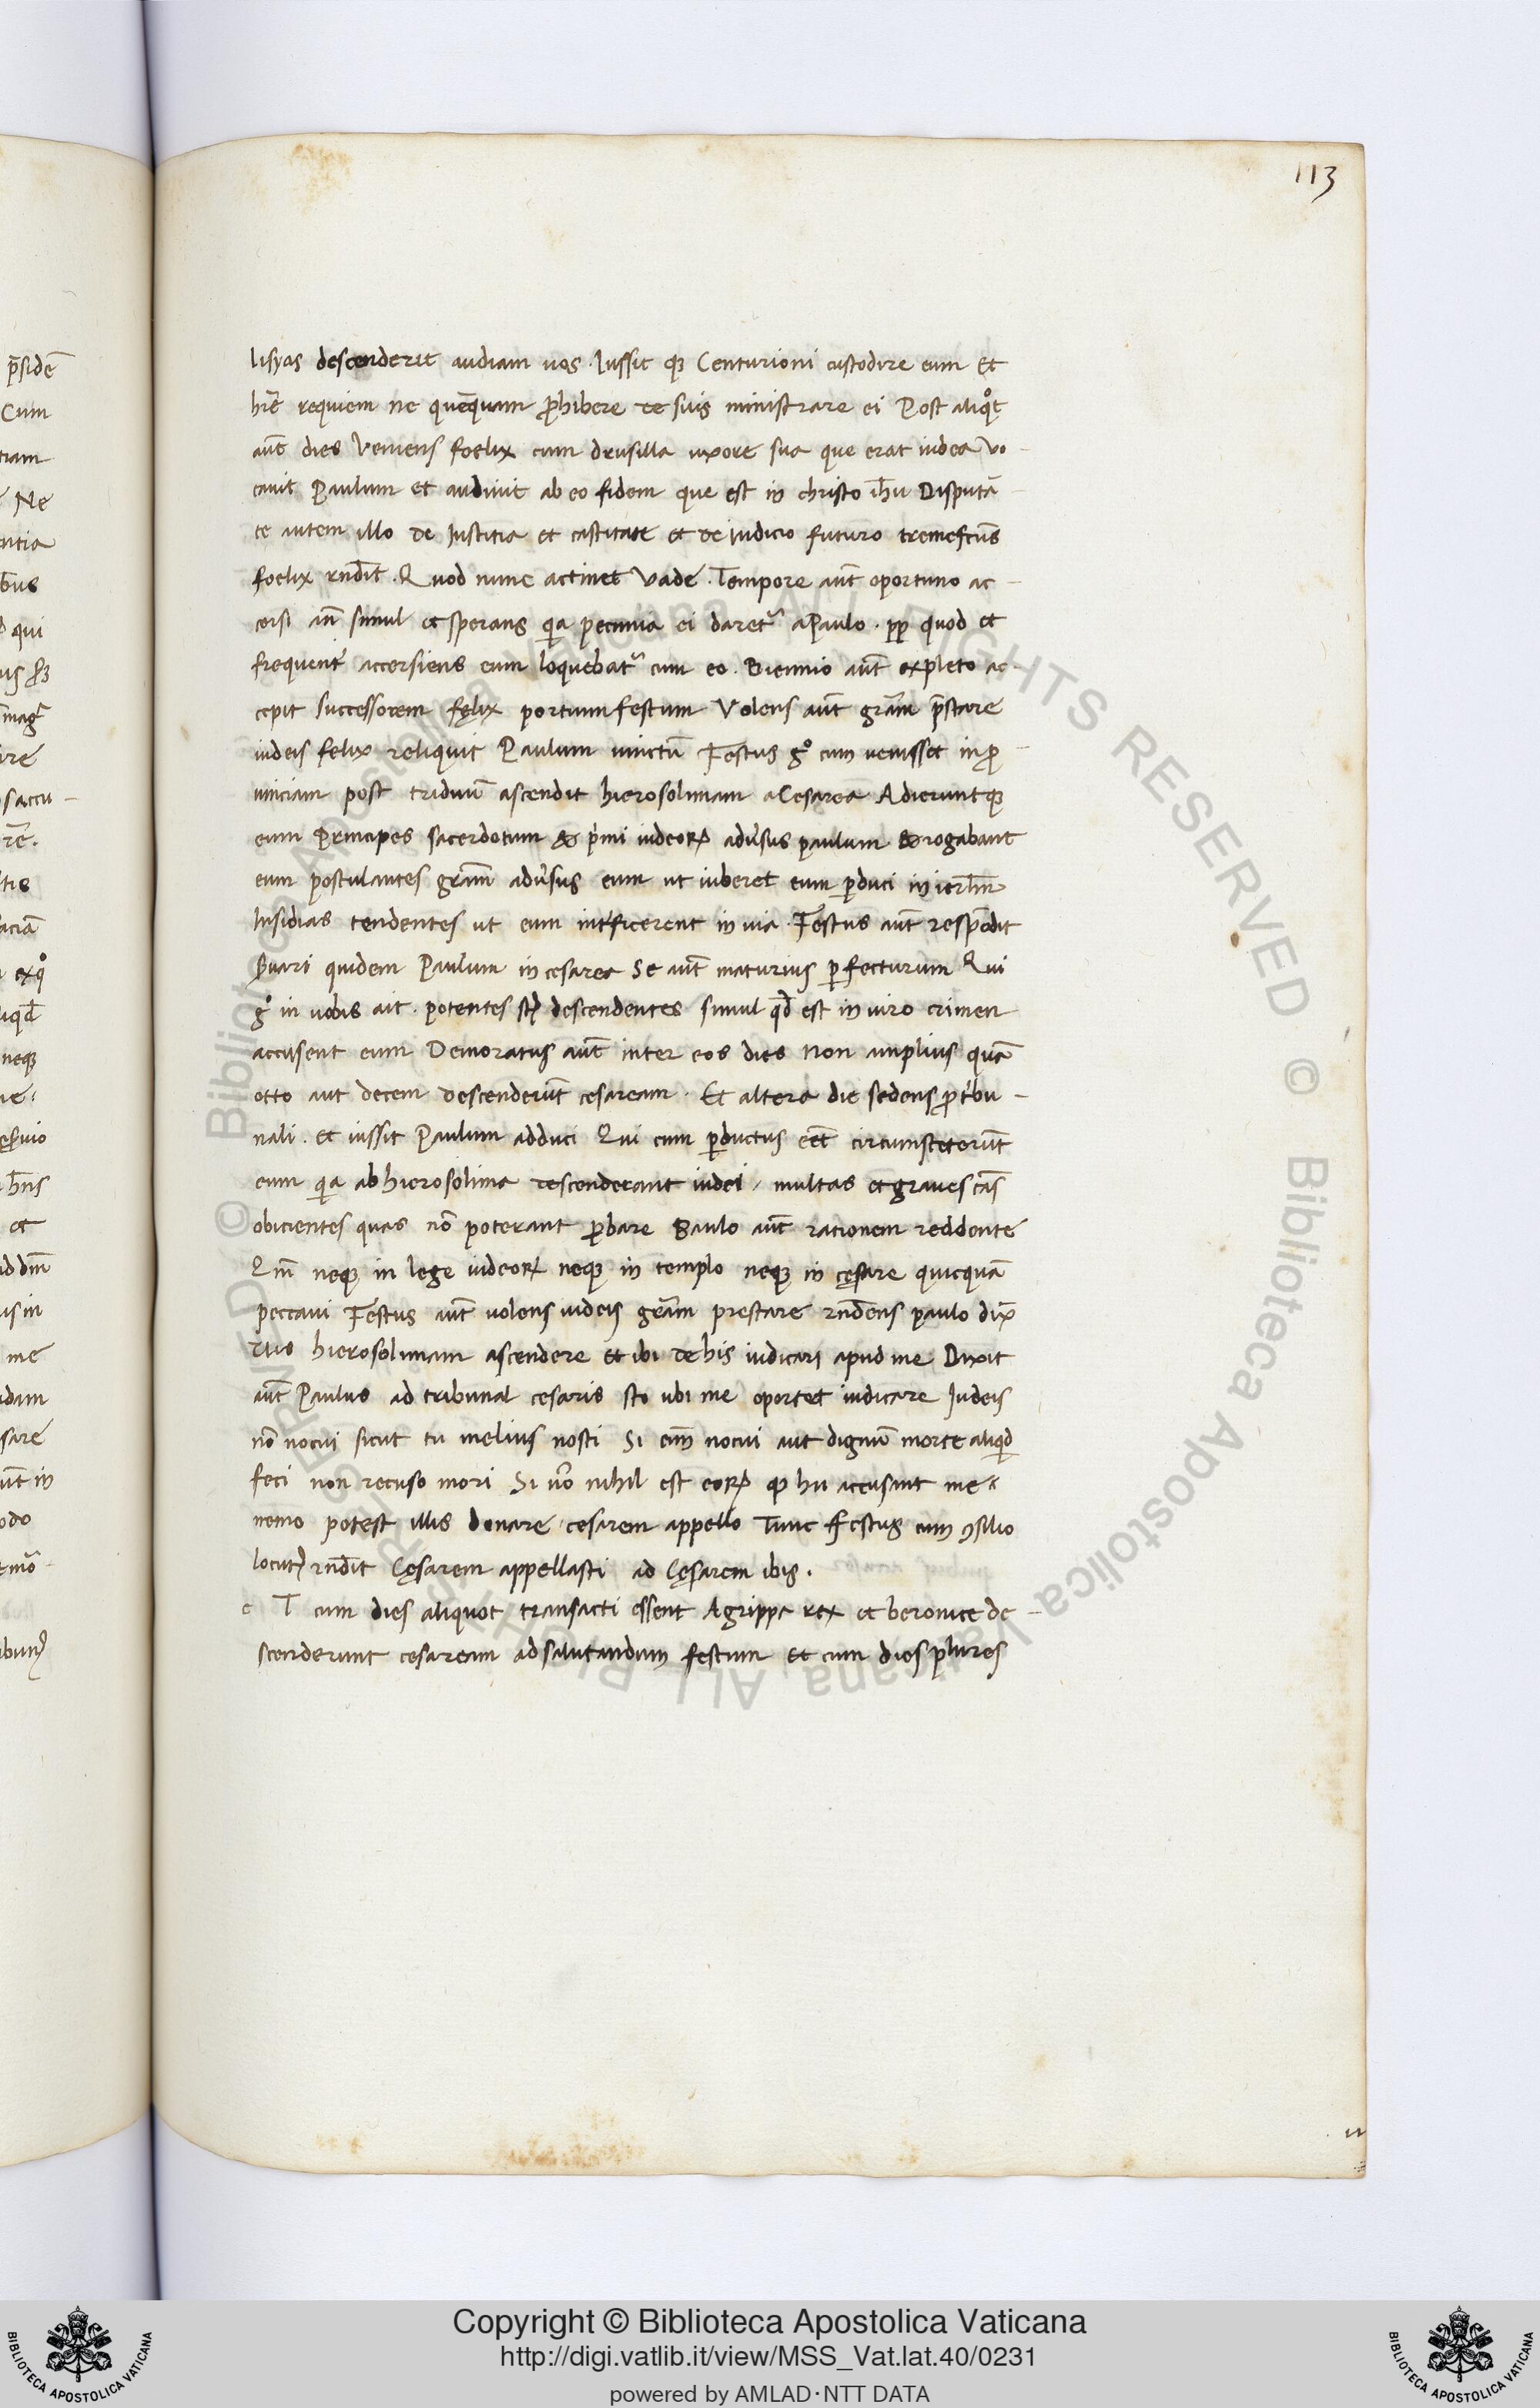 113
lisyas descenderit audiam uos . Iussit q; Centurioni custodire eum Et
hr̄e requiem ne quēquam ꝓhibere de suis ministrare ei Post aliqͦt
aut̄ dies Veniens foelix cum drusilla uxore sua que erat iudea vo-
cauit Paulum et audiuit ab eo fidem que est in christo ih̄u Disputā-
te autem illo de Iustitia et castitate et de iudicio futuro tremefcūs
foelix rn̄dit . Quod nunc actinet Vade . Tempore aut̄ oportuno ac-
cersi simul et sperans qia pecunia ei daret᷑ a Paulo . pp quod et
frequent̓ accersiens eum loquebat᷑ cum eo . Biennio aut̄ expleto ac-
cepit successorem fęlix portium festum Volens aut̄ gram̄ p̄stare
iudeis felix reliquit Paulum uinctū Festus gͦ cum uenisset in ꝓ-
uinciam post triduū ascendit hierosolimam a Cesarea Adieruntq;
eum Principes sacerdotum & p̓mi iudeoꝝ adu̓sus paulum . & rogabant
eum postulantes gram̄ adu̓sus eum ut iuberet eum ꝑduci in ierl̄m
Insidias tendentes ut eum int̓ficerent in uia . Festus aut̄ respōdit
s̓uari quidem Paulum in cesarea Se aut̄ maturius ꝑfecturum Qui
gͦ in uobis ait . potentes st̄ descendentes simul qd̄ est in uiro crimen
accusent eum Demoratus aut̄ inter eos dies non amplius quā
otto aut decem descenderūt cesaream . Et altera die sedens ꝓ t̓bu-
nali . et iussit Paulum adduci Qui cum ꝑductus eēt circumsteterūt
eum qia ab hierosolima descenderant iudei / multas et graues cās
obicientes quas nō poterant ꝓbare Paulo aut̄ rationem reddente
Qm̄ neq; in lege iudeoꝝ neq; in templo neq; in cęsare quicquā
peccaui Festus aut̄ uolens iudeis gram̄ prestare rn̄dens paulo dix̄
hierosolimam ascendere et ibi de his iudicari apud me Dixit
aut̄ Paulus ad tribunal cesaris sto ubi me oportet iudicare Iudeis
nō nocui sicut tu melius nosti Si em̄ nocui aut dignū morte aliqd̄
feci non recuso mori Si u̓o nihil est eoꝝ q hii accusant me
nemo potest illis donare / cesarem appello Tunc festus cum ꝯsilio
locut᷒ rn̄dit Cęsarem appellasti ad Cęsarem ibis .
e T cum dies aliquot transacti essent Agrippa rex et beronice de-
scenderunt cesaream ad salutandum festum Et cum dies plures
Copyright © Biblioteca Apostolica Vaticana
http://digi.vatlib.it/view/MSS_Vat.lat.40/0231
powered by AMLAD·NTT DATA
BIBLIOTECA APOSTOLICA VATICANA
BIBLIOTECA APOSTOLICA VATICANA